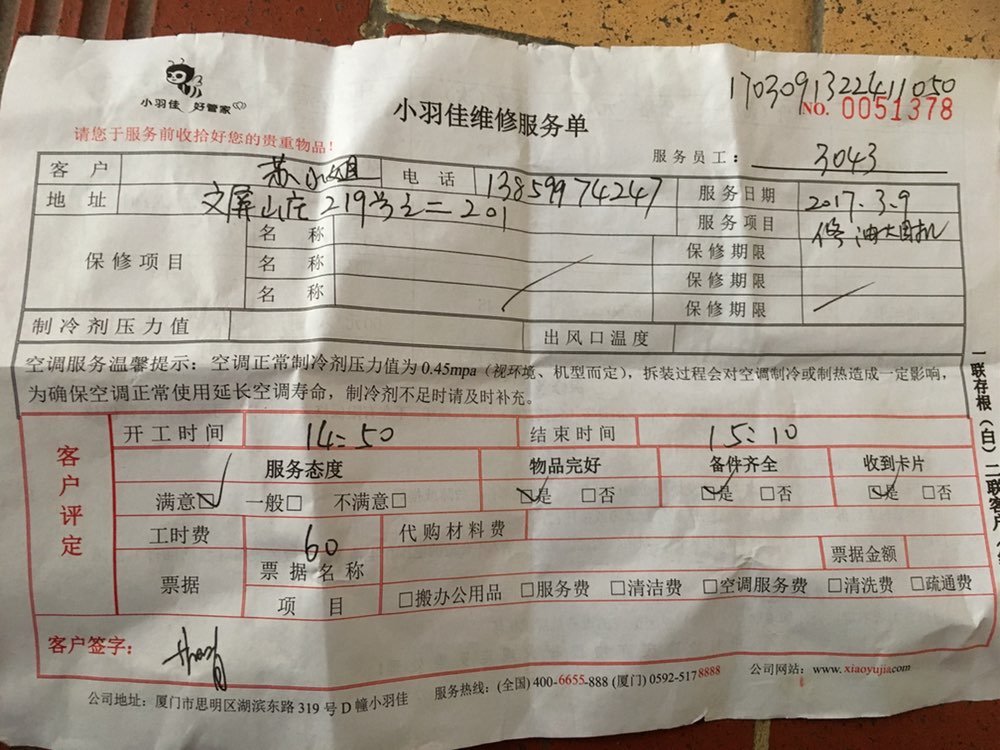 小羽佳 好管家
小羽佳维修服务单
1703091322411050
NO. 0051378
请您于服务前收拾好您的贵重物品！
服务员工： 3043
客户 苏小姐 电话 13859974247 服务日期 2017.3.9
地址 文屏山庄219号之二201 服务项目 修油烟机
保修项目 名称 保修期限
名称 保修期限
名称 保修期限
制冷剂压力值 出风口温度
空调服务温馨提示：空调正常制冷剂压力值为0.45mpa（视环境、机型而定），拆装过程会对空调制冷或制热造成一定影响，
为确保空调正常使用延长空调寿命，制冷剂不足时请及时补充。
客户评定
开工时间 14:50 结束时间 15:10
服务态度 物品完好 备件齐全 收到卡片
满意☑ 一般□ 不满意□ ☑是 □否 ☑是 □否 ☑是 □否
工时费 60 代购材料费
票据 票据名称 票据金额
项目 □搬办公用品 □服务费 □清洁费 □空调服务费 □清洗费 □疏通费
客户签字：
公司地址：厦门市思明区湖滨东路319号D幢小羽佳 服务热线：(全国)400-6655-888 (厦门)0592-5178888 公司网站：www.xiaoyujia.com
一联存根（白）二联客户